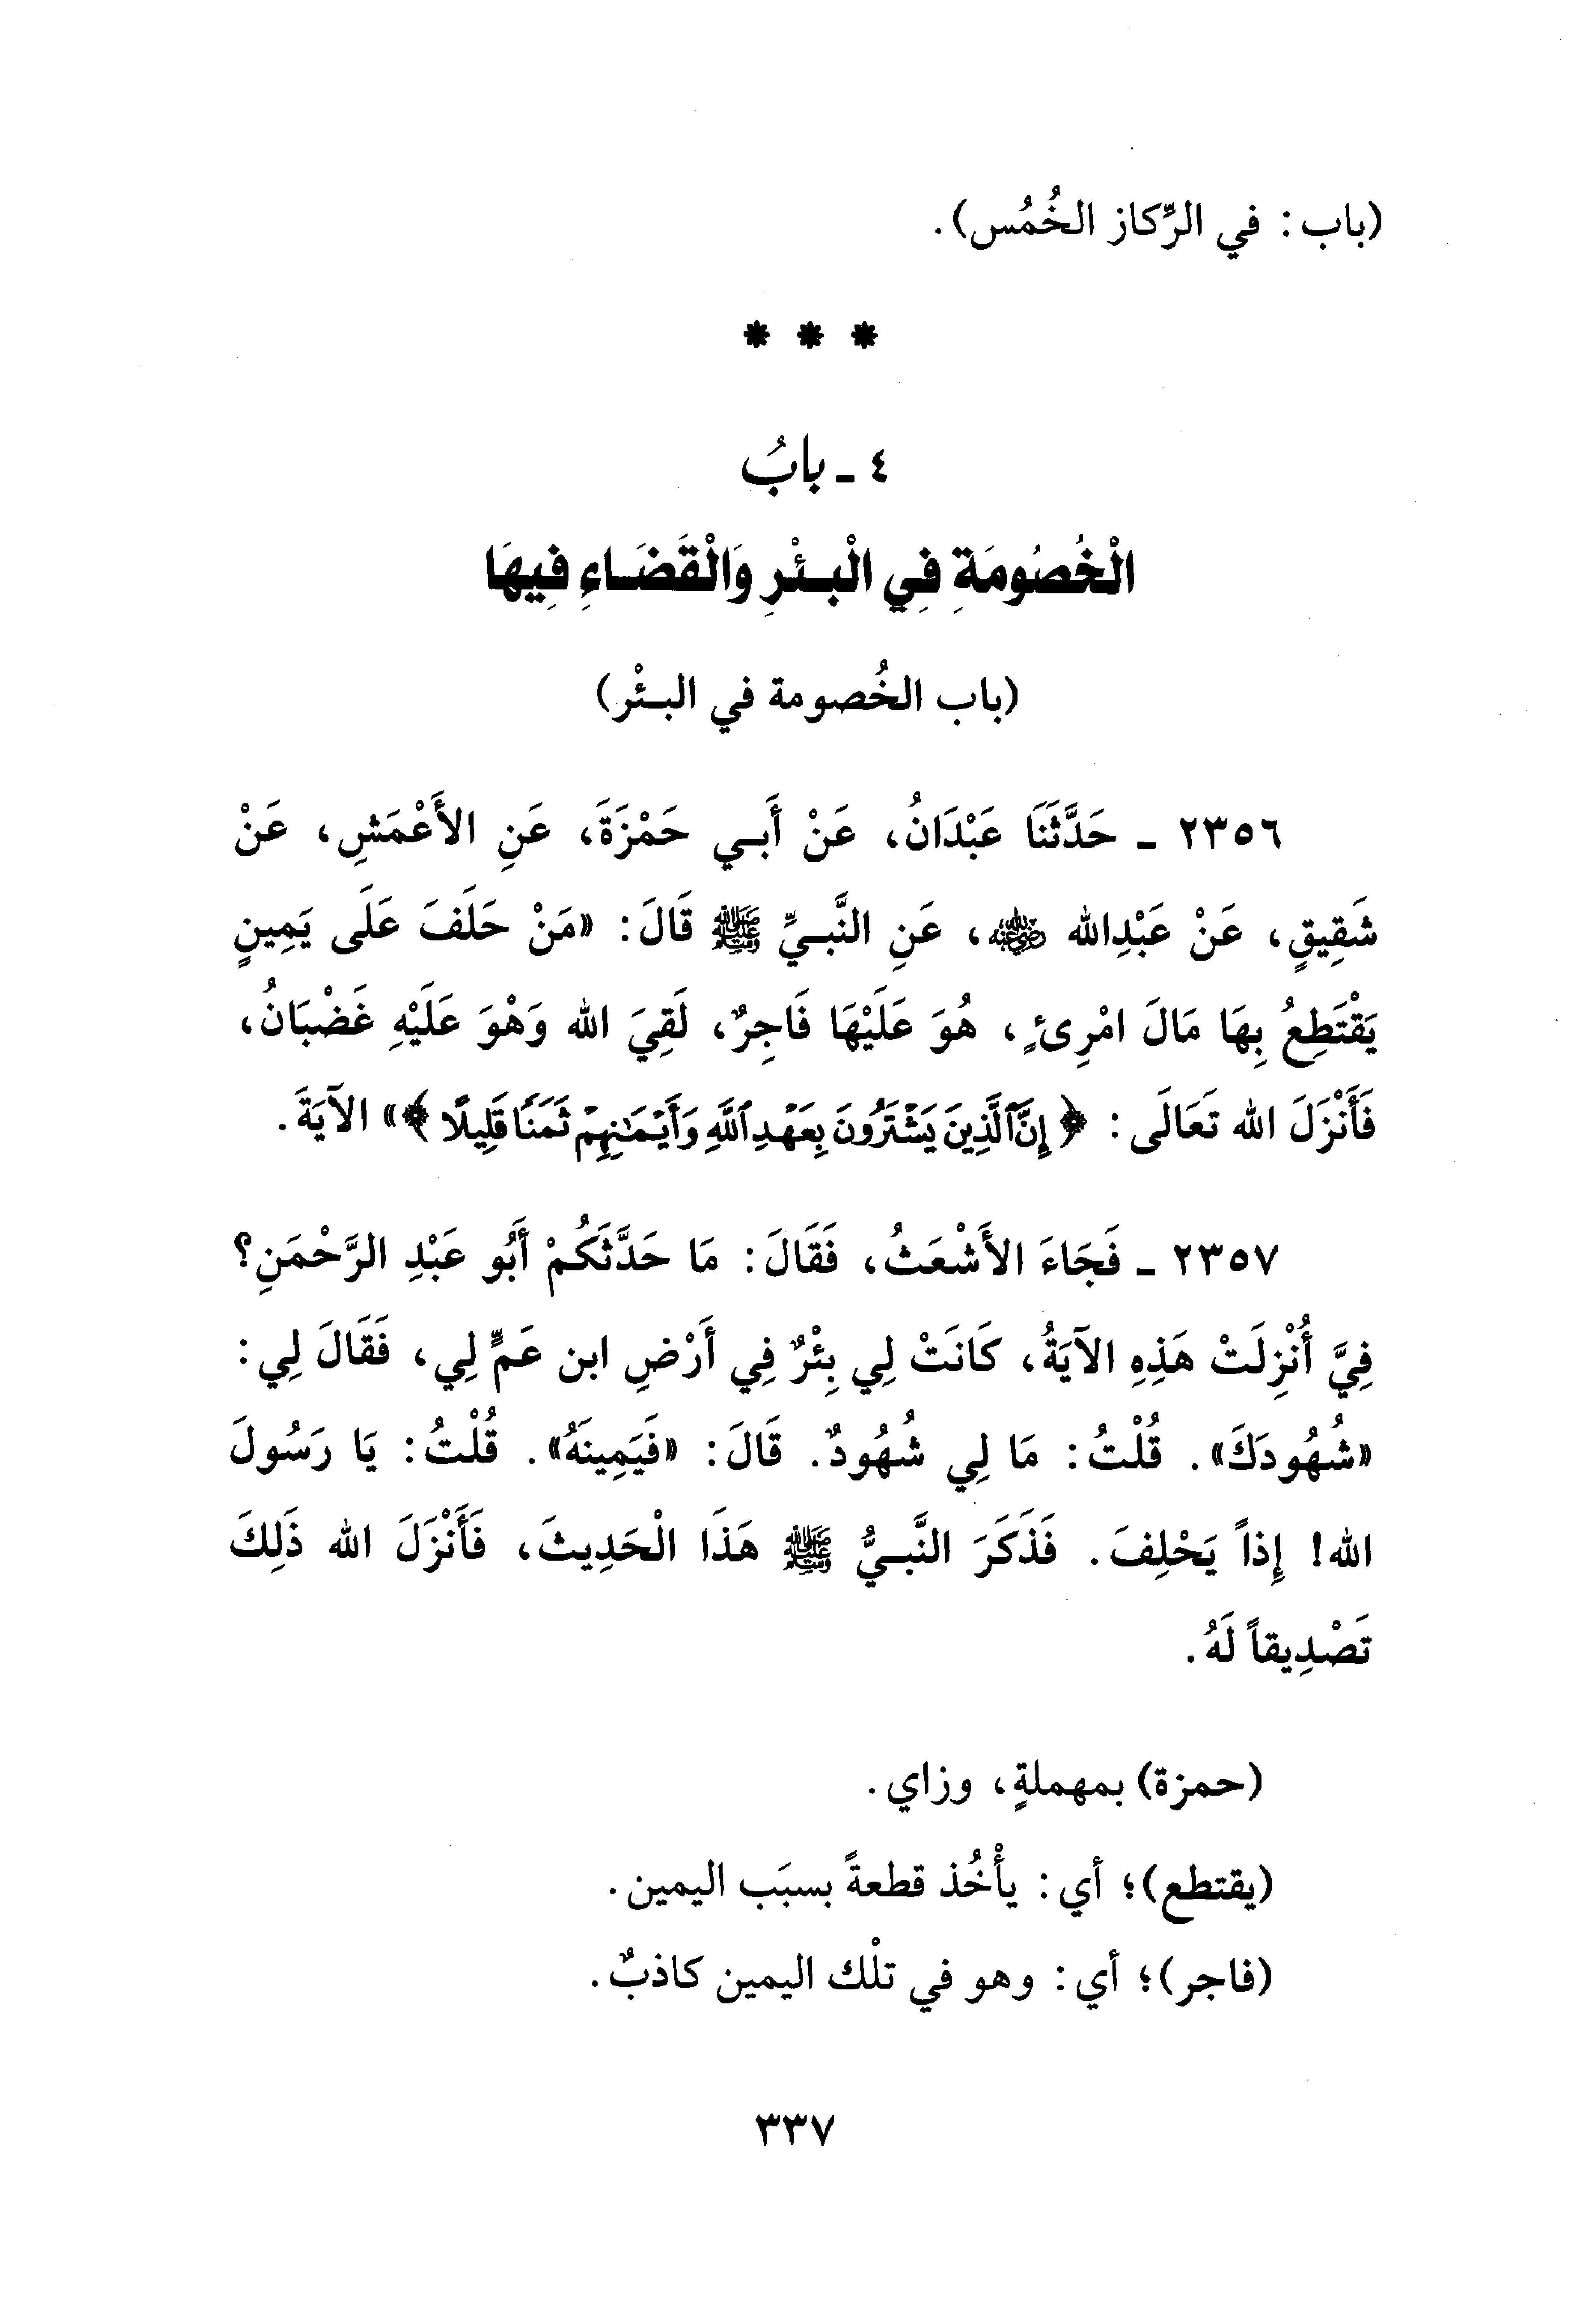 (باب: في الرِّكاز الخُمُس).
* * *
٤ - بابُ
الْخُصُومَةِ فِي الْبِئْرِ وَالْقَضَاءِ فِيهَا
(باب الخُصومة في البئْر)
٢٣٥٦ - حَدَّثَنَا عَبْدَانُ، عَنْ أَبي حَمْزَةَ، عَنِ الأَعْمَشِ، عَنْ
شَقِيقٍ، عَنْ عَبْدِالله ﵁، عَنِ النَّبيِّ ﷺ قَالَ: «مَنْ حَلَفَ عَلَى يَمِينٍ
يَقْتَطِعُ بِهَا مَالَ امْرِئٍ، هُوَ عَلَيْهَا فَاجِرٌ، لَقِيَ الله وَهْوَ عَلَيْهِ غَضْبَانُ،
فَأَنْزَلَ الله تَعَالَى: ﴿إِنَّ ٱلَّذِينَ يَشْتَرُونَ بِعَهْدِ ٱللَّهِ وَأَيْمَٰنِهِمْ ثَمَنًا قَلِيلًا﴾» الآيَةَ.
٢٣٥٧ - فَجَاءَ الأَشْعَثُ، فَقَالَ: مَا حَدَّثَكُمْ أَبُو عَبْدِ الرَّحْمَنِ؟
فِيَّ أُنْزِلَتْ هَذِهِ الآيَةُ، كَانَتْ لِي بِئْرٌ فِي أَرْضِ ابن عَمٍّ لِي، فَقَالَ لِي:
«شُهُودَكَ». قُلْتُ: مَا لِي شُهُودٌ. قَالَ: «فَيَمِينَهُ». قُلْتُ: يَا رَسُولَ
الله! إِذاً يَحْلِفَ. فَذَكَرَ النَّبيُّ ﷺ هَذَا الْحَدِيثَ، فَأَنْزَلَ الله ذَلِكَ
تَصْدِيقاً لَهُ.
(حمزة) بمهملةٍ، وزاي.
(يقتطع)؛ أي: يأْخُذ قطعةً بسبَب اليمين.
(فاجر)؛ أي: وهو في تلْك اليمين كاذبٌ.
٣٣٧